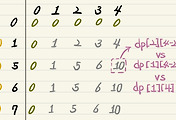 0 1 2 3 4
0 0 0 0 0 0
0 1 0 1 2 3 4 dp[2][4-2
vs
0 5 0 1 5 6 10 dp[1][4-2
vs
0 6 0 1 5 6 10 dp[1][4]
0 7 0 1 5 6 10